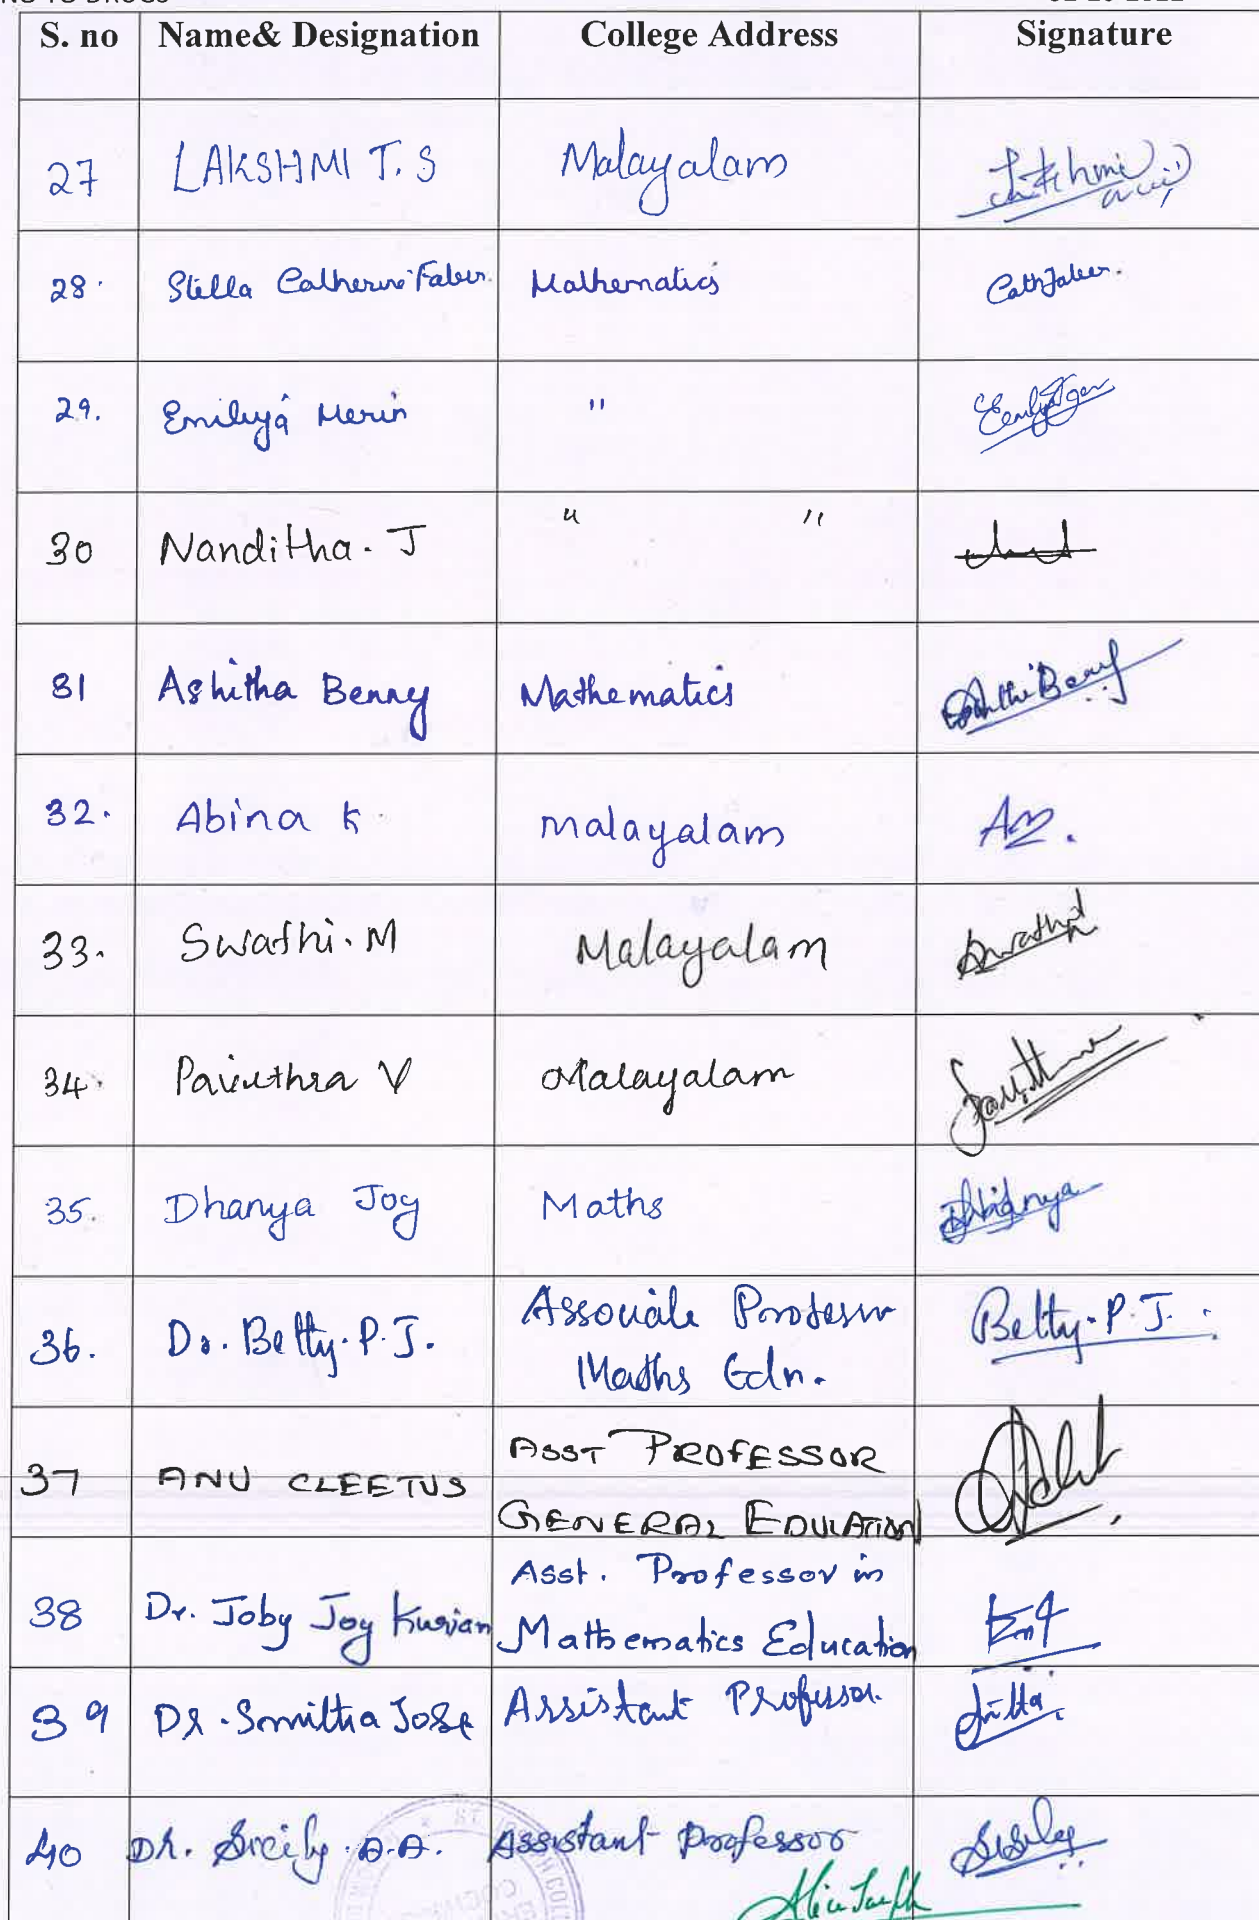 S. no Name& Designation College Address Signature
27 LAKSHMI T. S Malayalam Lakshmi
28. Stella Catherine Faber. Mathematics Cathfaber.
29. Emiliya Merin "
30 Nanditha. J " "
31 Ashitha Benny Mathematics
32. Abina K Malayalam
33. Swathi. M Malayalam Swathi
34. Pavithra V Malayalam
35. Dhanya Joy Maths Dhanya
36. Dr. Betty. P. J. Associate Professor Betty. P. J.
Maths Edn.
37 ANU CLEETUS ASST PROFESSOR
GENERAL EDUCATION
38 Dr. Joby Joy Kurian Asst. Professor in
Mathematics Education
39 Dr. Smitha Jose Assistant Professor.
40 Dr. Sicily A.A. Assistant Professor